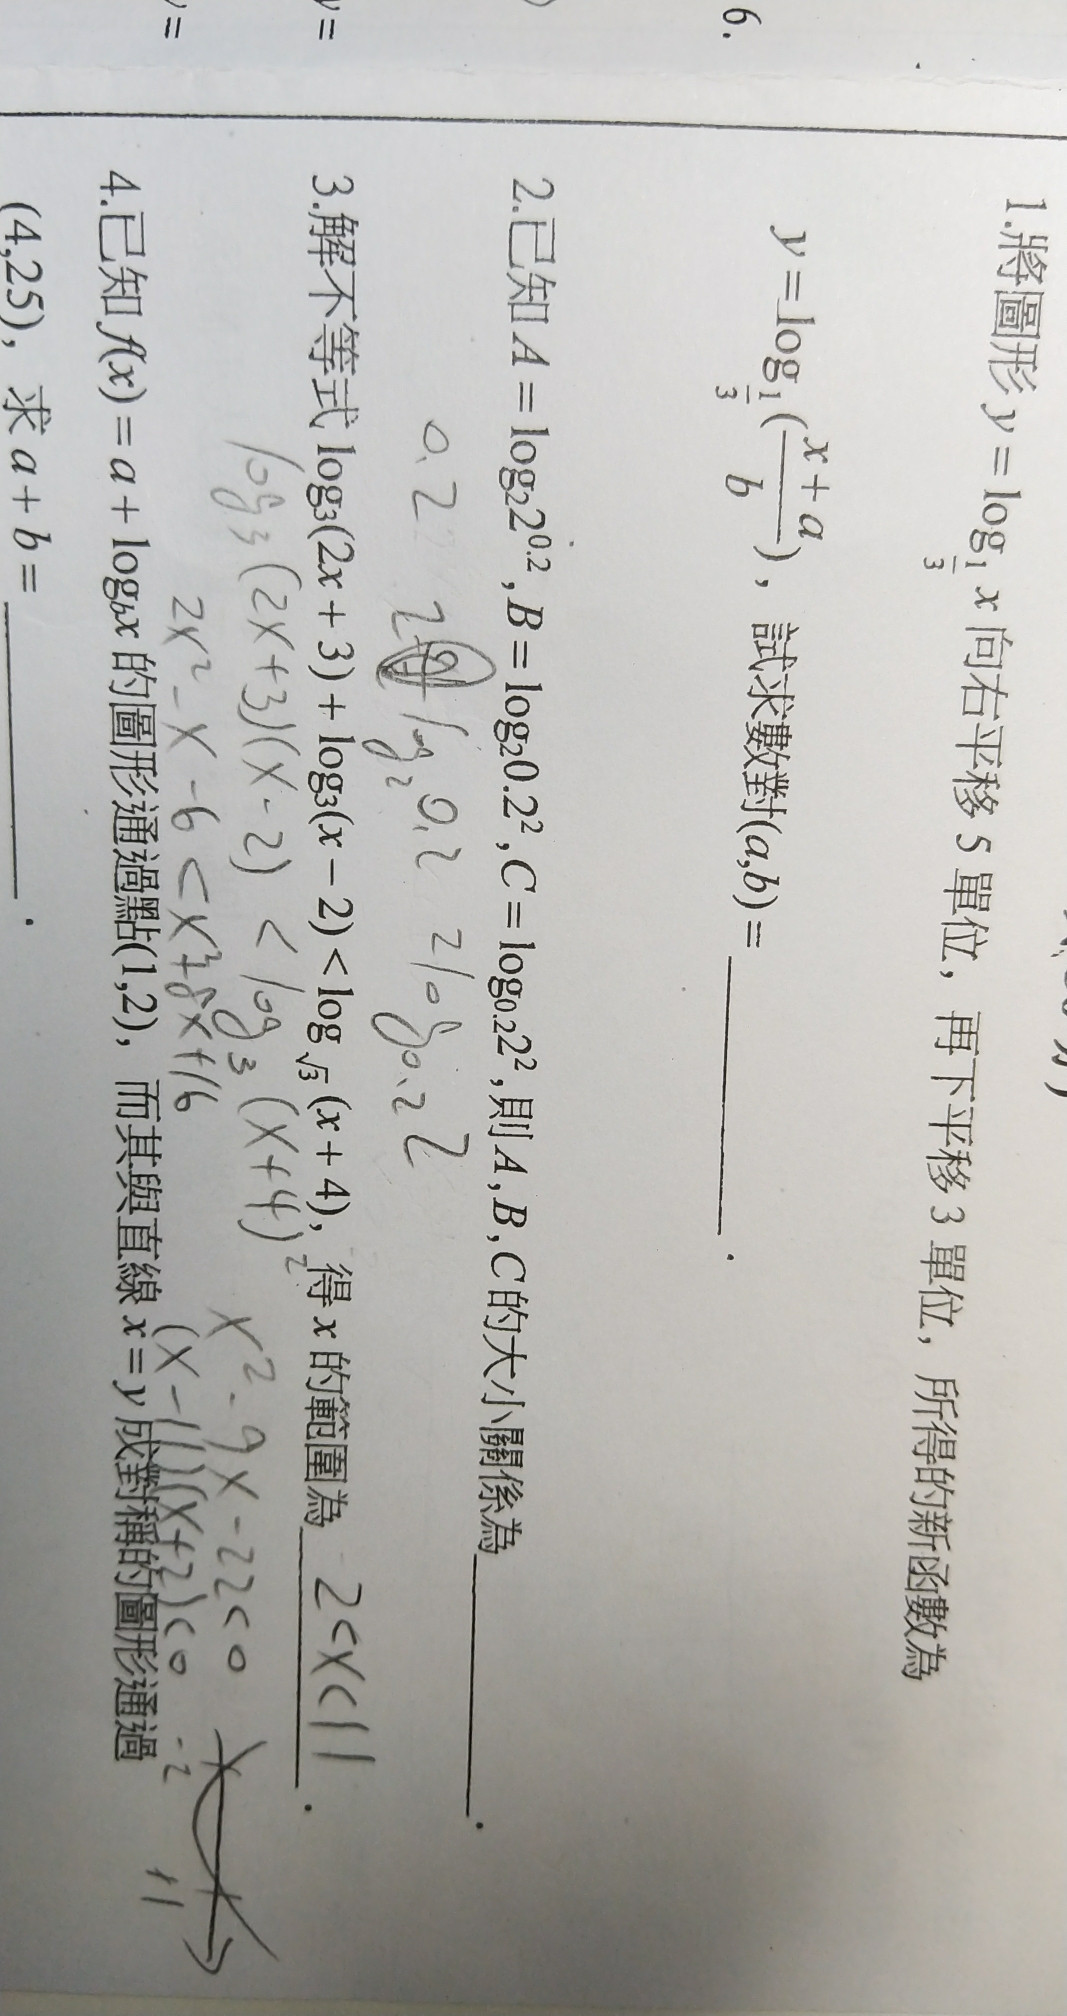 6.
1.將圖形 y = log_{1/3} x 向右平移 5 單位，再下平移 3 單位，所得的新函數為
y = log_{1/3}(\frac{x+a}{b})，試求數對(a,b)= ______.
2.已知 A = log₂2^{0.2}, B = log₂0.2², C = log_{0.2}2², 則 A, B, C 的大小關係為 ______.
0.2 2 log₂ 0.2 2 log_{0.2} 2
3.解不等式 log₃(2x+3) + log₃(x−2) < log_{√3}(x+4)，得 x 的範圍為 2<x<11.
log₃(2x+3)(x-2) < log₃(x+4)²
2x²-x-6 < x²+8x+16
x²-9x-22<0
(x-11)(x+2)<0
-2 11
4.已知 f(x) = a + log_b x 的圖形通過點(1,2)，而其與直線 x = y 成對稱的圖形通過
(4,25)，求 a + b = ______.
y =